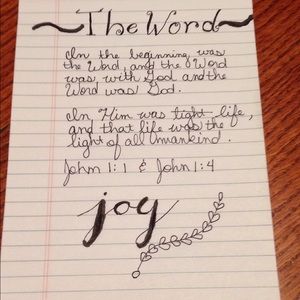 ~The Word~
In the beginning was
the Word, and the Word
was with God and the
Word was God.
In Him was light life,
and that life was the
light of all mankind.
John 1:1 & John 1:4
joy